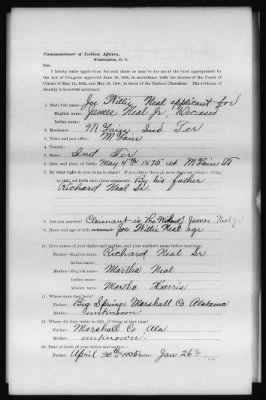 Commissioner of Indian Affairs,
Washington, D. C.
Sir:
I hereby make application for such share as may be due me of the fund appropriated by
the Act of Congress approved June 30, 1906, in accordance with the decrees of the Court of
Claims of May 18, 1905, and May 28, 1906, in favor of the Eastern Cherokees. The evidence of
identity is herewith subjoined.
1. State full name: Joe Willie Neal applicant for
English name: James Neal Jr. Deceased
Indian name:
2. Residence: McLain Ind Ter
3. Town and post office: McLain
4. County:
5. State: Ind Ter
6. Date and place of birth: May 4th 1875 at McLain
7. By what right do you claim to share? If you claim through more than one relative living
in 1851, set forth each claim separately: By his father
Richard Neal Sr.
8. Are you married? Claimant is the Widow of James Neal Jr
9. Name and age of wife Joe Willie Neal age
10. Give names of your father and mother, and your mother's name before marriage.
Father—English name: Richard Neal Sr
Indian name:
Mother—English name: Martha Neal
Indian name:
Maiden name: Martha Harris
11. Where were they born?
Father: Big Springs Marshall Co Alabama
Mother: unknown
12. Where did they reside in 1851, if living at that time?
Father: Marshall Co Ala
Mother: unknown
13. Date of death of your father and mother—
Father: April 30th Mother: Jan 26th